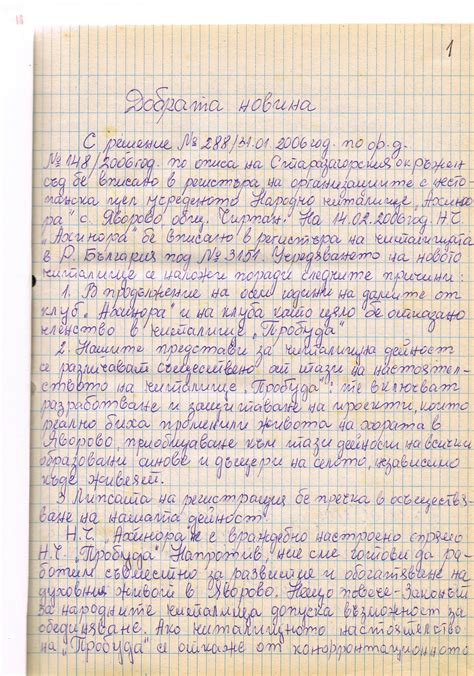 1
Добрата новина
С решение № 288/31.01.2006 год. по ф.д.
№ 148/2006 год. по описа на Старозагорския окръжен
съд бе вписано в регистъра на организациите с несто-
панска цел учреденото Народно читалище „Ахино-
ра" с. Яворово общ. Чирпан. На 14.02.2006 год. Н.Ч.
„Ахинора" бе вписано в регистъра на читалищата
в Р. България под № 3151. Учредяването на новото
читалище се наложи поради следните причини:
1. В продължение на осем години на дамите от
клуб „Ахинора" и на клуба като цяло бе отказано
членство в читалище „Пробуда".
2. Нашите представи за читалищна дейност
се различават съществено от тази на настоятел-
ството на читалище „Пробуда": те включват
разработване и защитаване на проекти, които
реално биха променили живота на хората в
Яворово, приобщаване към тази дейност на всички
образовани синове и дъщери на селото, независимо
къде живеят.
3. Липсата на регистрация бе пречка в осъществя-
ване на нашата дейност.
Н.Ч. „Ахинора" не е враждебно настроено спрямо
Н.Ч. „Пробуда". Напротив, ние сме готови да ра-
ботим съвместно за развитие и обогатяване на
духовния живот в Яворово. Нещо повече - Законът
за народните читалища допуска възможност за
обединяване. Ако читалищното настоятелство
на „Пробуда" се откаже от конфронтационното